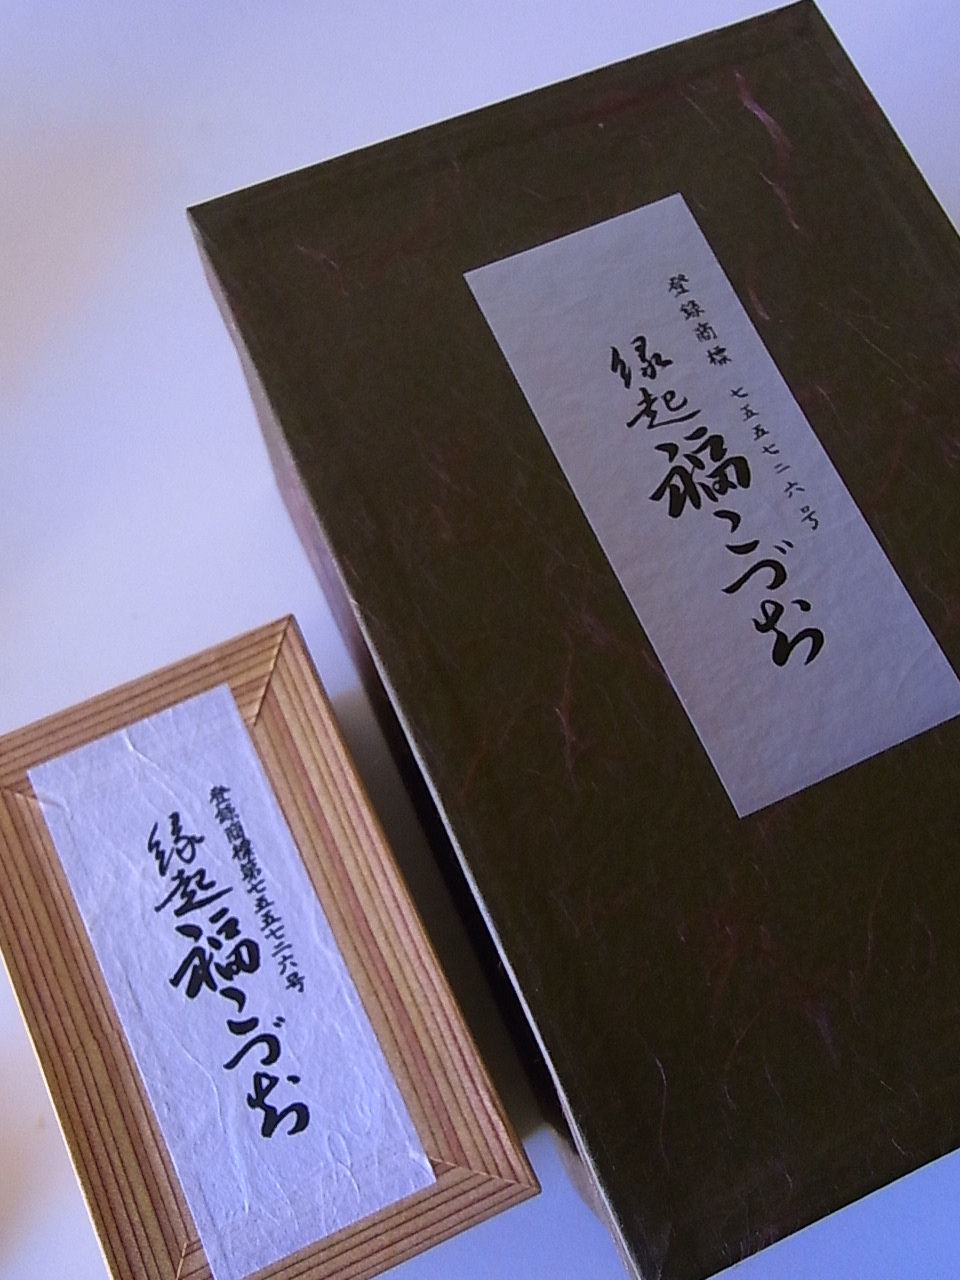 登録商標 七五五七二六号
縁起福こづち
登録商標第七五五七二六号
縁起福こづち